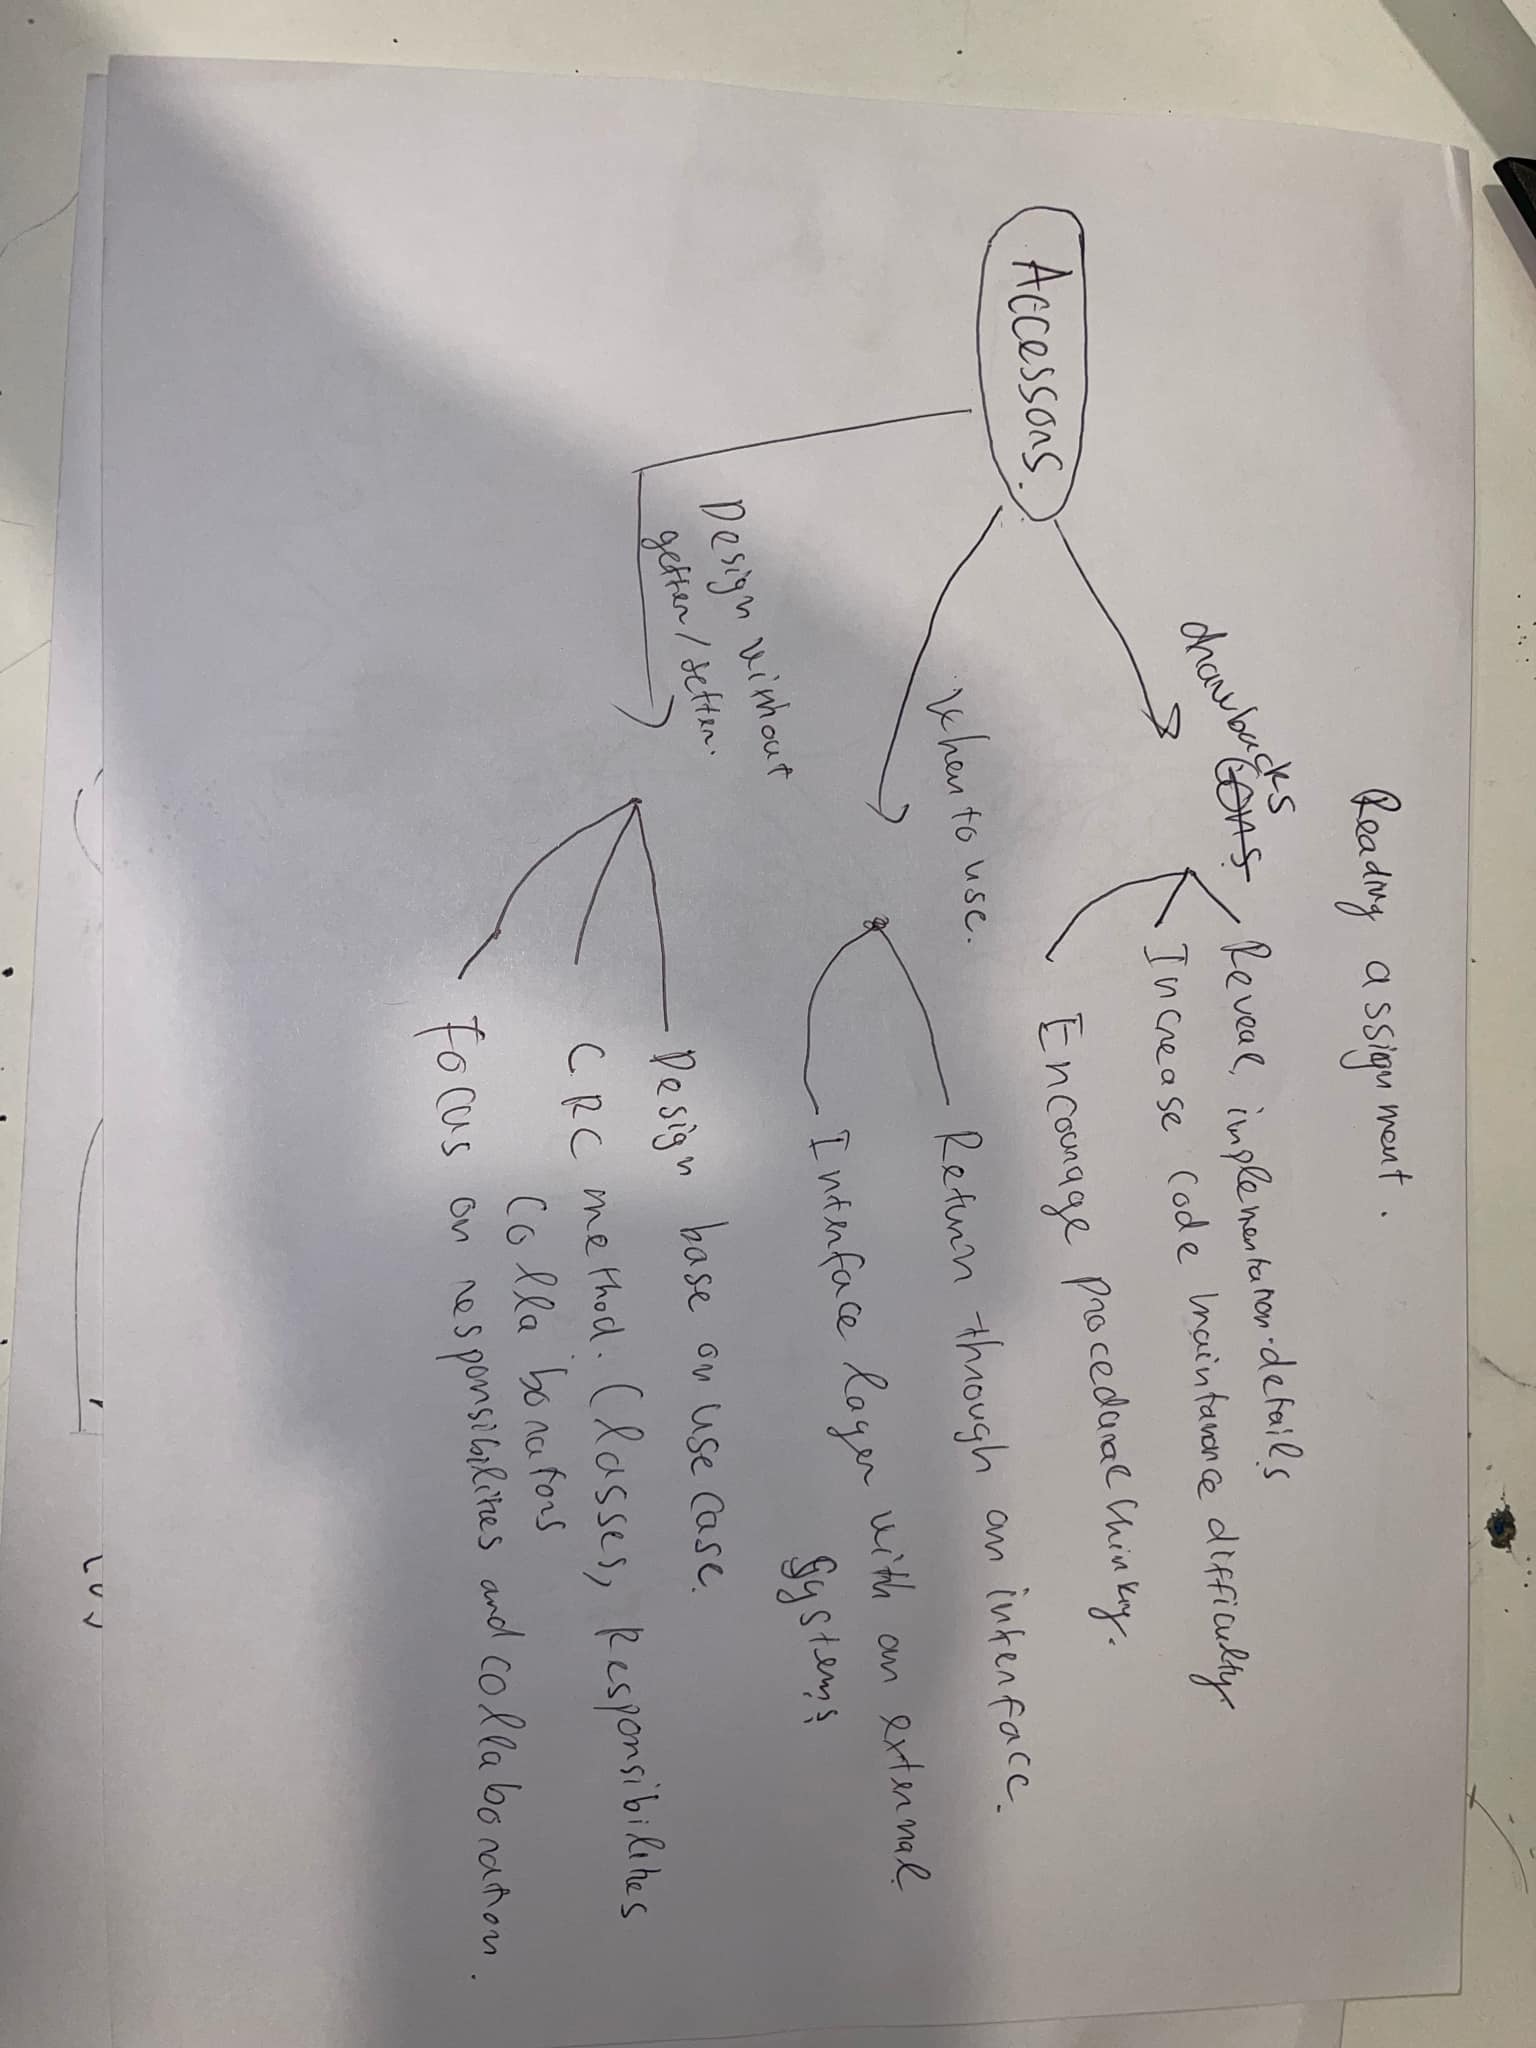 Reading assignment.
drawbacks
Cons
Reveal implementation details
Increase code maintanance difficulty.
Encourage procedural thinking.
Accessors.
When to use.
Return through an interface.
Interface layer with an external
Systems
Design without
getter/setter.
Design base on use case.
CRC method. Classes, Responsibilities
Collaborators
Focus on responsibilities and collaboration.